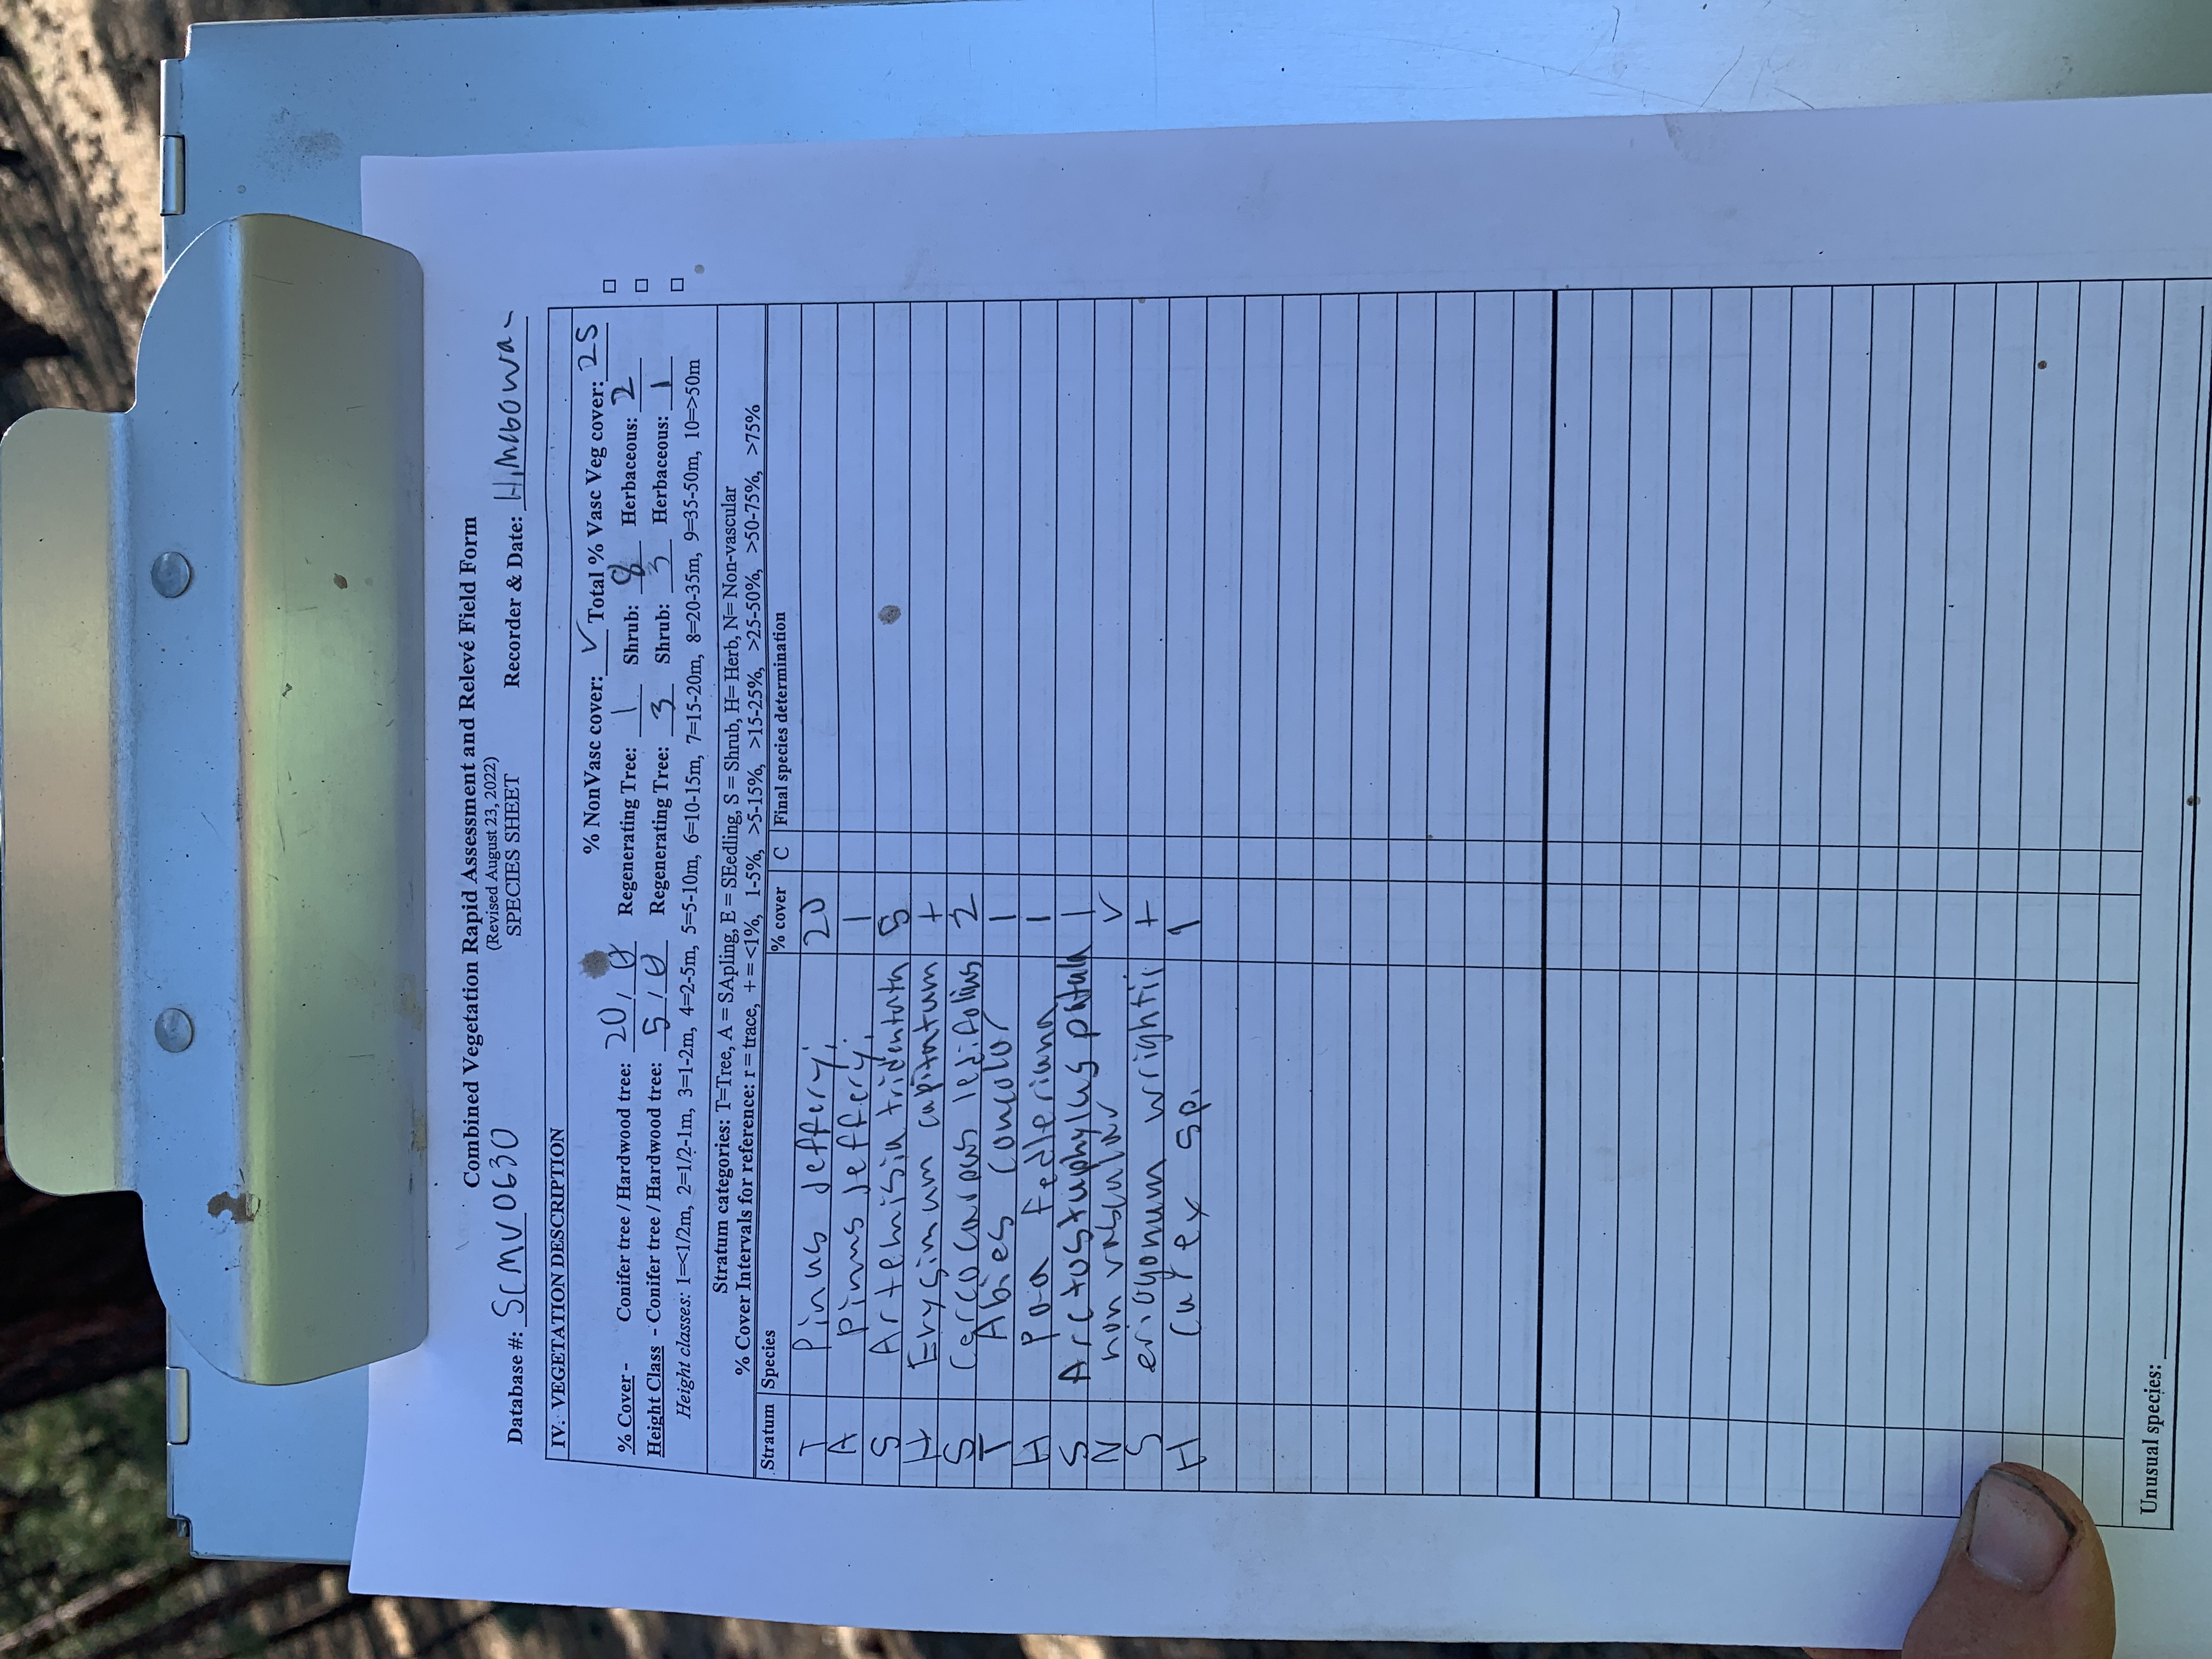 Combined Vegetation Rapid Assessment and Relevé Field Form
(Revised August 23, 2022)
Database #: SCMV0630 SPECIES SHEET Recorder & Date:
IV. VEGETATION DESCRIPTION
% NonVasc cover: r Total % Vasc Veg cover: 25
% Cover - Conifer tree / Hardwood tree: 20 / 0 Regenerating Tree: 1 Shrub: 8 Herbaceous: 2
Height Class - Conifer tree / Hardwood tree: 5 / 0 Regenerating Tree: 3 Shrub: 3 Herbaceous: 1
Height classes: 1=<1/2m, 2=1/2-1m, 3=1-2m, 4=2-5m, 5=5-10m, 6=10-15m, 7=15-20m, 8=20-35m, 9=35-50m, 10=>50m
Stratum categories: T=Tree, A = SApling, E = SEedling, S = Shrub, H= Herb, N= Non-vascular
% Cover Intervals for reference: r = trace, + = <1%, 1-5%, >5-15%, >15-25%, >25-50%, >50-75%, >75%
Stratum Species % cover C Final species determination
T Pinus Jefferyi 20
A Pinus Jefferyi 1
S Artemisia tridentata 5
H Erysimum capitatum +
S Cercocarpus ledifolius 2
T Abies concolor 1
H Poa fedleriana 1
S Arctostaphylus patula 1
N non vascular r
S eriogonum wrightii +
H Carex sp. 1
Unusual species: